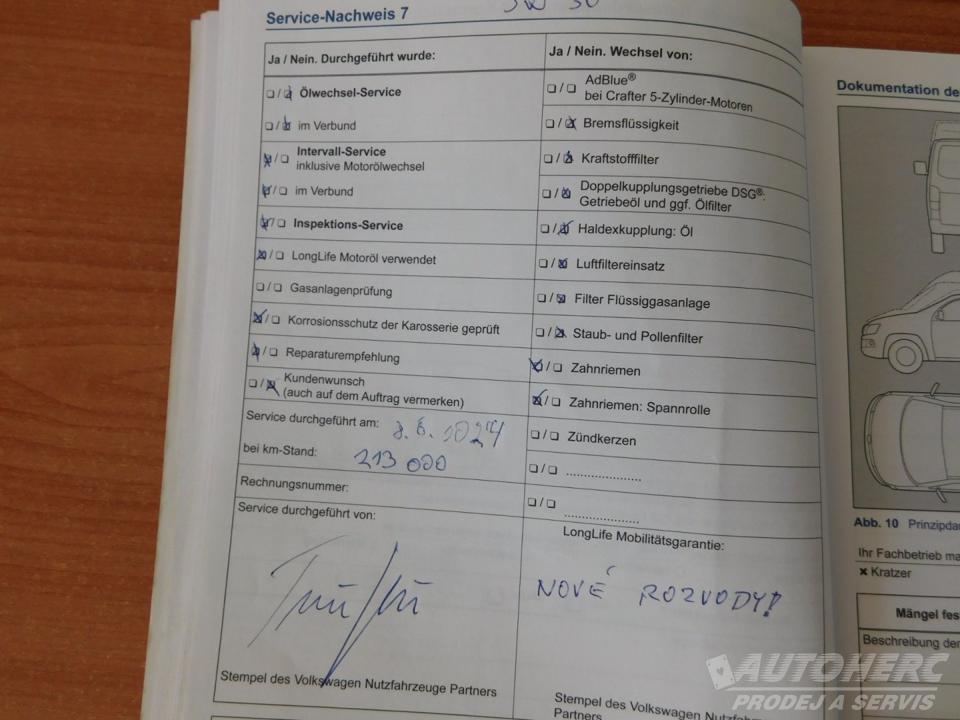 Service-Nachweis 7
5W 30
Ja / Nein. Durchgeführt wurde:
❏/❏ Ölwechsel-Service
❏/❏ im Verbund
❏/❏ Intervall-Service
inklusive Motorölwechsel
❏/❏ im Verbund
❏/❏ Inspektions-Service
❏/❏ LongLife Motoröl verwendet
❏/❏ Gasanlagenprüfung
❏/❏ Korrosionsschutz der Karosserie geprüft
❏/❏ Reparaturempfehlung
❏/❏ Kundenwunsch
(auch auf dem Auftrag vermerken)
Service durchgeführt am:
bei km-Stand: 213 000
Rechnungsnummer:
Service durchgeführt von:
Stempel des Volkswagen Nutzfahrzeuge Partners
Ja / Nein. Wechsel von:
❏/❏ AdBlue®
bei Crafter 5-Zylinder-Motoren
❏/❏ Bremsflüssigkeit
❏/❏ Kraftstofffilter
❏/❏ Doppelkupplungsgetriebe DSG®:
Getriebeöl und ggf. Ölfilter
❏/❏ Haldexkupplung: Öl
❏/❏ Luftfiltereinsatz
❏/❏ Filter Flüssiggasanlage
❏/❏ Staub- und Pollenfilter
❏/❏ Zahnriemen
❏/❏ Zahnriemen: Spannrolle
❏/❏ Zündkerzen
❏/❏ .....................
❏/❏ .....................
LongLife Mobilitätsgarantie:
NOVÉ ROZVODY!
Stempel des Volkswagen Nutzfahrzeuge
Partners
Dokumentation de
Abb. 10 Prinzipda
Ihr Fachbetrieb ma
✖ Kratzer
Mängel fes
Beschreibung der
AUTOHERC
PRODEJ A SERVIS